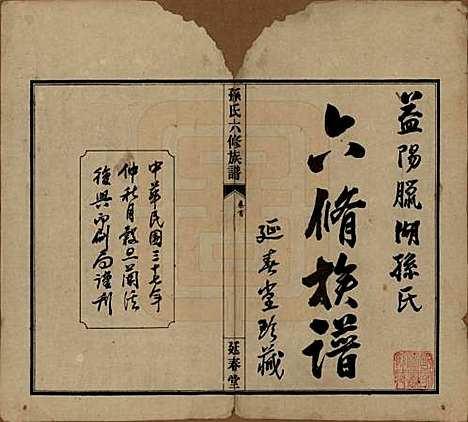 益陽臘湖孫氏
六脩族譜
延春堂珍藏
孫氏六修族譜
卷首
延春堂
中華民國三十七年
仲秋月穀旦蘭法
復興印刷局謹刊